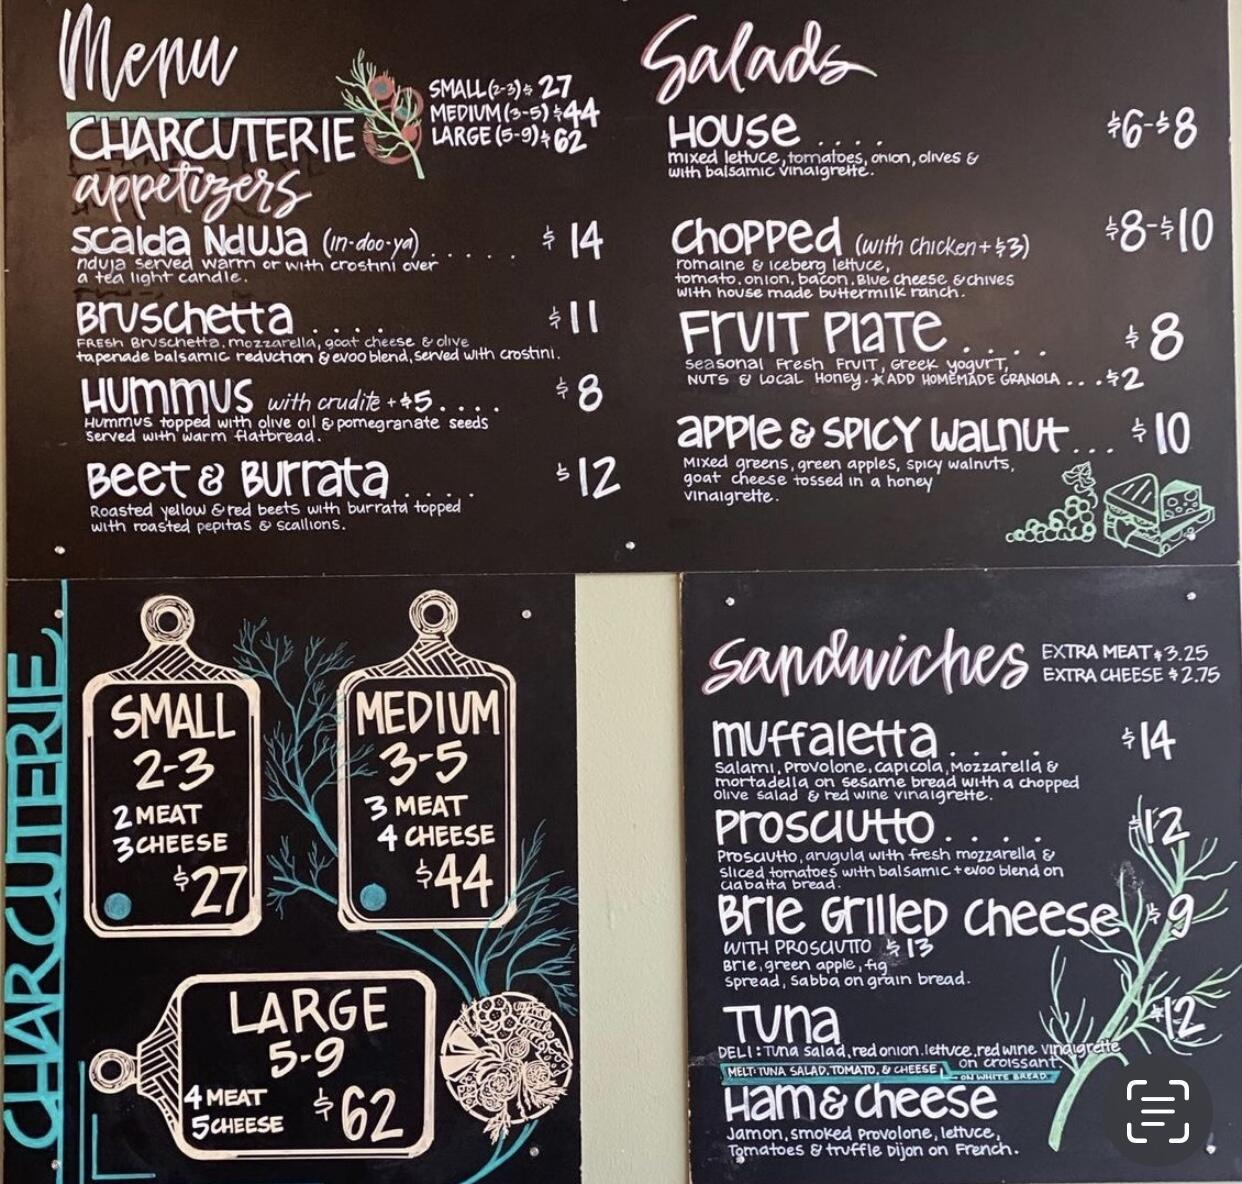 Menu
CHARCUTERIE
SMALL (2-3) $ 27
MEDIUM (3-5) $44
LARGE (5-9) $ 62
appetizers
Scalda Nduja (in-doo-ya) . . . . . $ 14
nduja served warm or with crostini over
a tea light candle.
Bruschetta . . . . $ 11
Fresh Bruschetta, mozzarella, goat cheese & olive
tapenade balsamic reduction & evoo blend, served with crostini.
Hummus with crudite + $5 . . . . $ 8
Hummus topped with olive oil & pomegranate seeds
served with warm flatbread.
Beet & Burrata . . . . . $ 12
Roasted yellow & red beets with burrata topped
with roasted pepitas & scallions.
Salads
House . . . . $6-$8
mixed lettuce, tomatoes, onion, olives &
with balsamic vinaigrette.
Chopped (with chicken + $3) $8-$10
romaine & iceberg lettuce,
tomato, onion, bacon, Blue cheese & chives
with house made buttermilk ranch.
FRUIT Plate . . . . $ 8
seasonal Fresh FRUIT, Greek yogurt,
NUTS & LOCAL HONEY. ★ ADD HOMEMADE GRANOLA . . . $2
apple & SPICY walnut . . . $ 10
Mixed greens, green apples, spicy walnuts,
goat cheese tossed in a honey
vinaigrette.
CHARCUTERIE
SMALL
2-3
2 MEAT
3 CHEESE
$27
MEDIUM
3-5
3 MEAT
4 CHEESE
$44
LARGE
5-9
4 MEAT
5 CHEESE
$ 62
Sandwiches
EXTRA MEAT $3.25
EXTRA CHEESE $2.75
muffaletta . . . . . $14
Salami, Provolone, capicola, Mozzarella &
mortadella on sesame bread with a chopped
olive salad & red wine vinaigrette.
Prosciutto . . . . $12
Prosciutto, arugula with fresh mozzarella &
sliced tomatoes with balsamic + evoo blend on
ciabatta bread.
Brie Grilled cheese $ 9
WITH PROSCIUTTO $ 13
Brie, green apple, fig
spread, sabba on grain bread.
Tuna $12
DELI: Tuna salad, red onion, lettuce, red wine vinaigrette
on croissant.
MELT: TUNA SALAD, TOMATO, & CHEESE
ON WHITE BREAD
Ham & cheese
Jamon, smoked Provolone, lettuce,
Tomatoes & truffle Dijon on French.